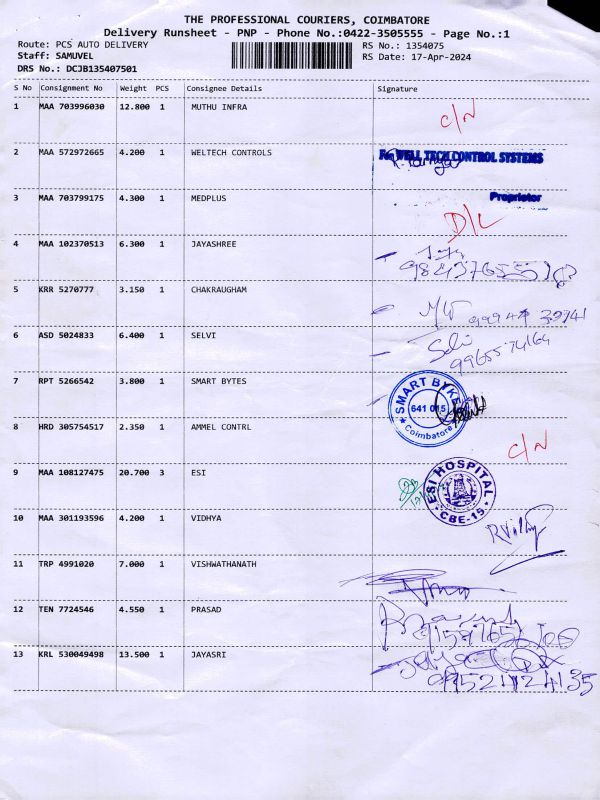 THE PROFESSIONAL COURIERS, COIMBATORE
Delivery Runsheet - PNP - Phone No.:0422-3505555 - Page No.:1
Route: PCS AUTO DELIVERY
RS No.: 1354075
Staff: SAMUVEL
RS Date: 17-Apr-2024
DRS No.: DCJB135407501
S No Consignment No Weight PCS Consignee Details Signature
1 MAA 703996030 12.800 1 MUTHU INFRA
C/N
2 MAA 572972665 4.200 1 WELTECH CONTROLS
For WELL TECH CONTROL SYSTEMS
3 MAA 703799175 4.300 1 MEDPLUS
Proprietor
D/L
4 MAA 102370513 6.300 1 JAYASHREE
5 KRR 5270777 3.150 1 CHAKRAUGHAM
6 ASD 5024833 6.400 1 SELVI
Selvi
7 RPT 5266542 3.800 1 SMART BYTES
SMART BYKE
641 015
Coimbatore
8 HRD 305754517 2.350 1 AMMEL CONTRL
C/N
9 MAA 108127475 20.700 3 ESI
ESI HOSPITAL
CBE-15
10 MAA 301193596 4.200 1 VIDHYA
11 TRP 4991020 7.000 1 VISHWATHANATH
12 TEN 7724546 4.550 1 PRASAD
13 KRL 530049498 13.500 1 JAYASRI